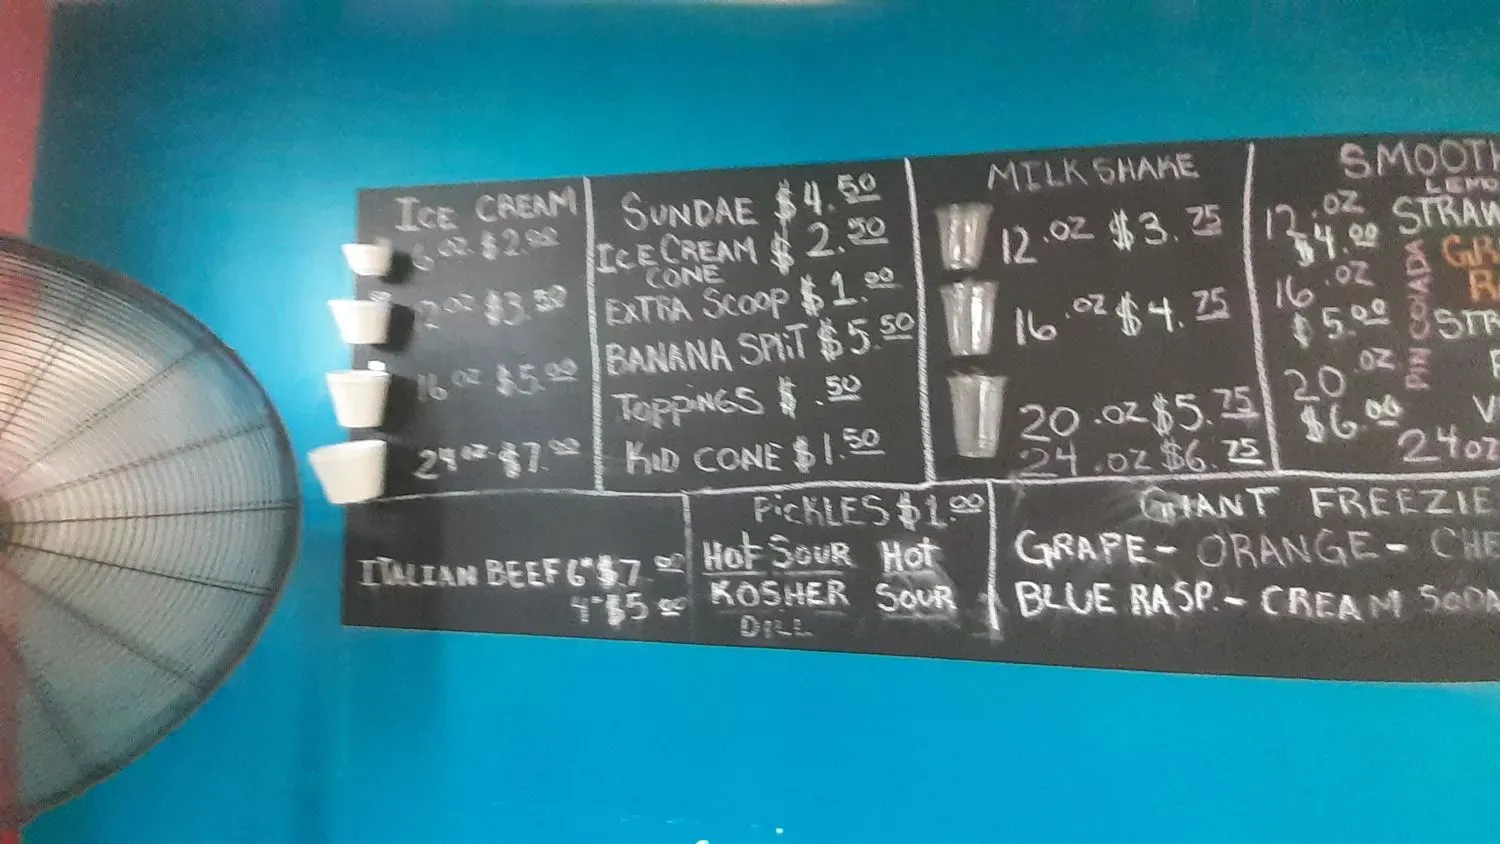 ICE CREAM
6 OZ $2.00
12 OZ $3.50
16 OZ $5.00
24 OZ $7.00
SUNDAE $4.50
ICE CREAM $2.50
CONE
EXTRA SCOOP $1.00
BANANA SPLIT $5.50
TOPPINGS $.50
KID CONE $1.50
MILK SHAKE
12.OZ $3.75
16.OZ $4.75
20.OZ $5.75
24.OZ $6.75
SMOOTH
12.OZ
$4.00
16.OZ
$5.00
20 OZ
$6.00
24OZ
LEMO
STRAW
PIN COLADA
STR
ITALIAN BEEF 6" $7.00
4" $5.00
PICKLES $1.00
HOT SOUR HOT
KOSHER SOUR
DILL
GIANT FREEZIE
GRAPE - ORANGE - CHE
BLUE RASP. - CREAM SODA